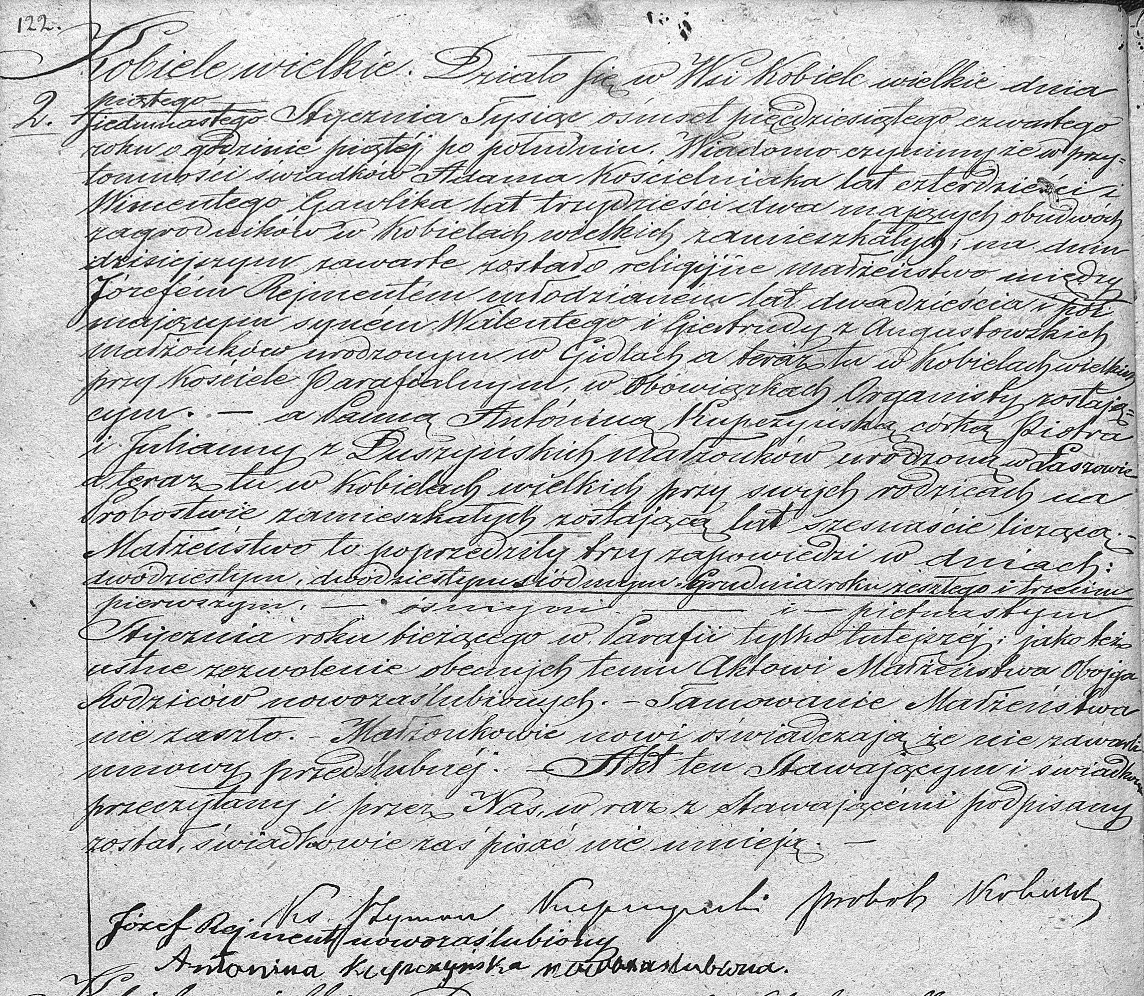 122.
Kobiele wielkie. Działo się w Wsi Kobiele wielkie dnia
2. piętego
jedenastego Stycznia Tysiąc ośmset pięćdziesiątego czwartego
roku o godzinie piątéj po południu. Wiadomo czynimy że w przy-
tomności świadków Adama Kościelniaka lat czterdzieści i
Wincentego Gawlika lat trzydzieści dwa mających obudwóch
zagrodników w Kobielach wielkich zamieszkałych; na dniu
dzisiejszym zawarte zostało religijne małżeństwo między
Józefem Rejmentem młodzianem lat dwadzieścia i pół
mającym synem Walentego i Giertrudy z Augustowskich
małżonków urodzonym w Gidlach a teraz tu w Kobielach wielkich
przy Kościele Parafialnym, w obowiązkach Organisty zostają-
cym. — a Panną Antoniną Kupczyńską córką Piotra
i Julianny z Duszyńskich małżonków urodzoną w
a teraz tu w Kobielach wielkich przy swych rodzicach na
Probostwie zamieszkałych zostającą lat szesnaście liczącą. —
Małżeństwo to poprzedziły trzy zapowiedzi w dniach:
dwódziestym, dwodziestym siódmym Grudnia roku zeszłego i trzecim
pierwszym, — ósmym — i — piętnastym
Stycznia roku bieżącego w Parafii tylko tutejszej; jako też
ustne zezwolenie obecnych temu Aktowi Małżeństwa Obojga
Rodziców nowozaślubionych. — Tamowanie Małżeństwa
nie zaszło. — Małżonkowie nowi oświadczają że nie zawarli
umowy przedślubnéj. — Akt ten Stawającym i świadkom
przeczytany i przez Nas, w raz z Stawającémi podpisany
został, świadkowie zaś pisać nie umieją. —
Ks. Szymon Kupczyński probosz
Józef Rejment nowozaślubiony
Antonina Kupczyńska nowozaslubiona.